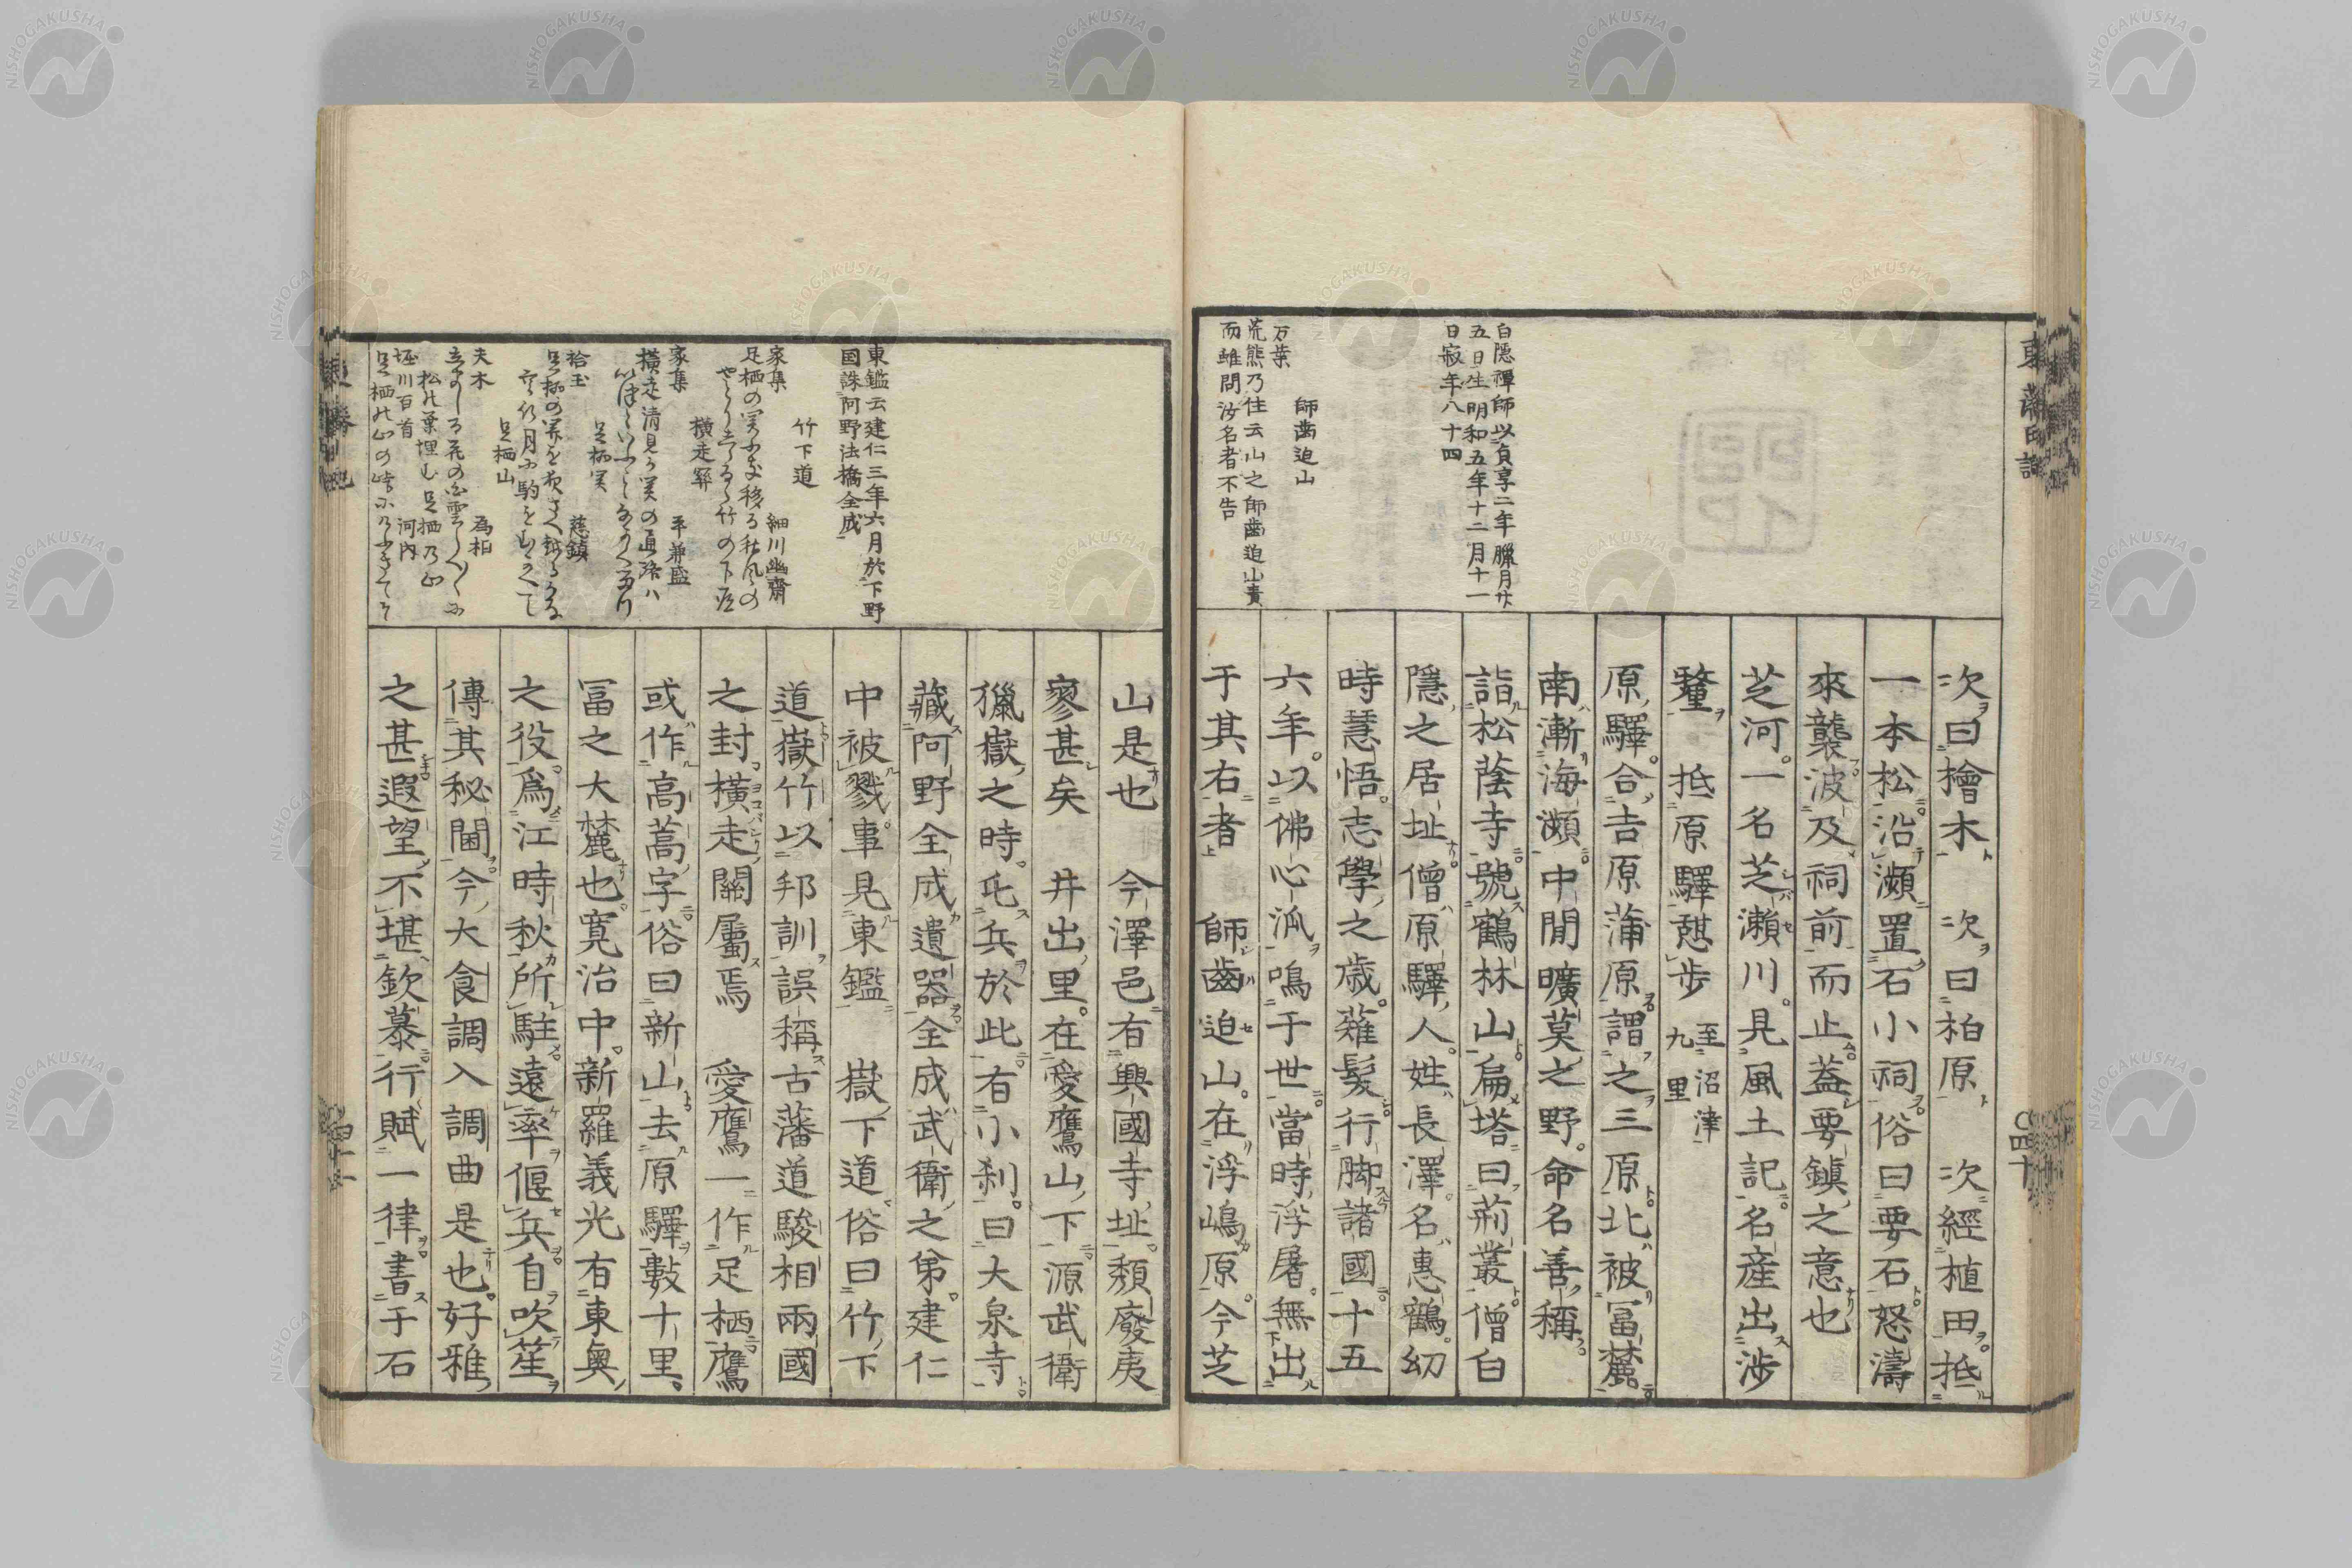 白隱禪師以貞享二年臘月廿
五日生明和五年十二月十一
日寂年八十四
師齒迫山
万葉
荒熊乃住云山之師齒迫山責
而雖問汝名者不告
次曰檜木 次曰柏原 次經植田抵
一本松沿瀕置石小祠俗曰要石怒濤
來襲波及祠前而止蓋要鎮之意也
芝河一名芝瀬川見風土記名産出渉
鼇 抵原驛憩步 至沼津九里
原驛合吉原蒲原謂之三原北被冨麓
南漸海瀕中間曠莫之野命名善稱
詣松蔭寺號鶴林山扁塔曰荊叢僧白
隱之居址僧原驛人姓長澤名惠鶴幻
時慧悟志學之歳薙髮行脚諸國十五
六年以佛心派鳴于世當時浮屠無出
于其右者 師齒迫山在浮嶋原今芝
四十
東鑑云建仁三年六月於下野
国誅阿野法橋全成
竹下道
家集 細川幽齋
足栖の関ふき移る秋風の
横走驛
家集 平兼盛
横走清見か関の通路ハ
足栖関
拾玉 慈鎮
足栖山
夫木 為相
松の葉埋む足栖乃山
堀川百首 河内
山是也 今澤邑有興國寺址頽廢夷
寥甚矣 井出里在愛鷹山下源武衛
獵嶽之時屯兵於此有小刹曰大泉寺
藏阿野全成遺器全成武衛之弟建仁
中被戮事見東鑑 嶽下道俗曰竹下
道嶽竹以邦訓誤稱古藩道駿相兩國
之封橫走關屬焉 愛鷹一作足栖鷹
或作高蒿字俗曰新山去原驛數十里
冨之大麓也寬治中新羅義光有東奧
之役為江時秋所駐遠率偃兵自吹笙
傳其秘閫今大食調入調曲是也好雅
之甚遐望不堪欽慕行賦一律書于石